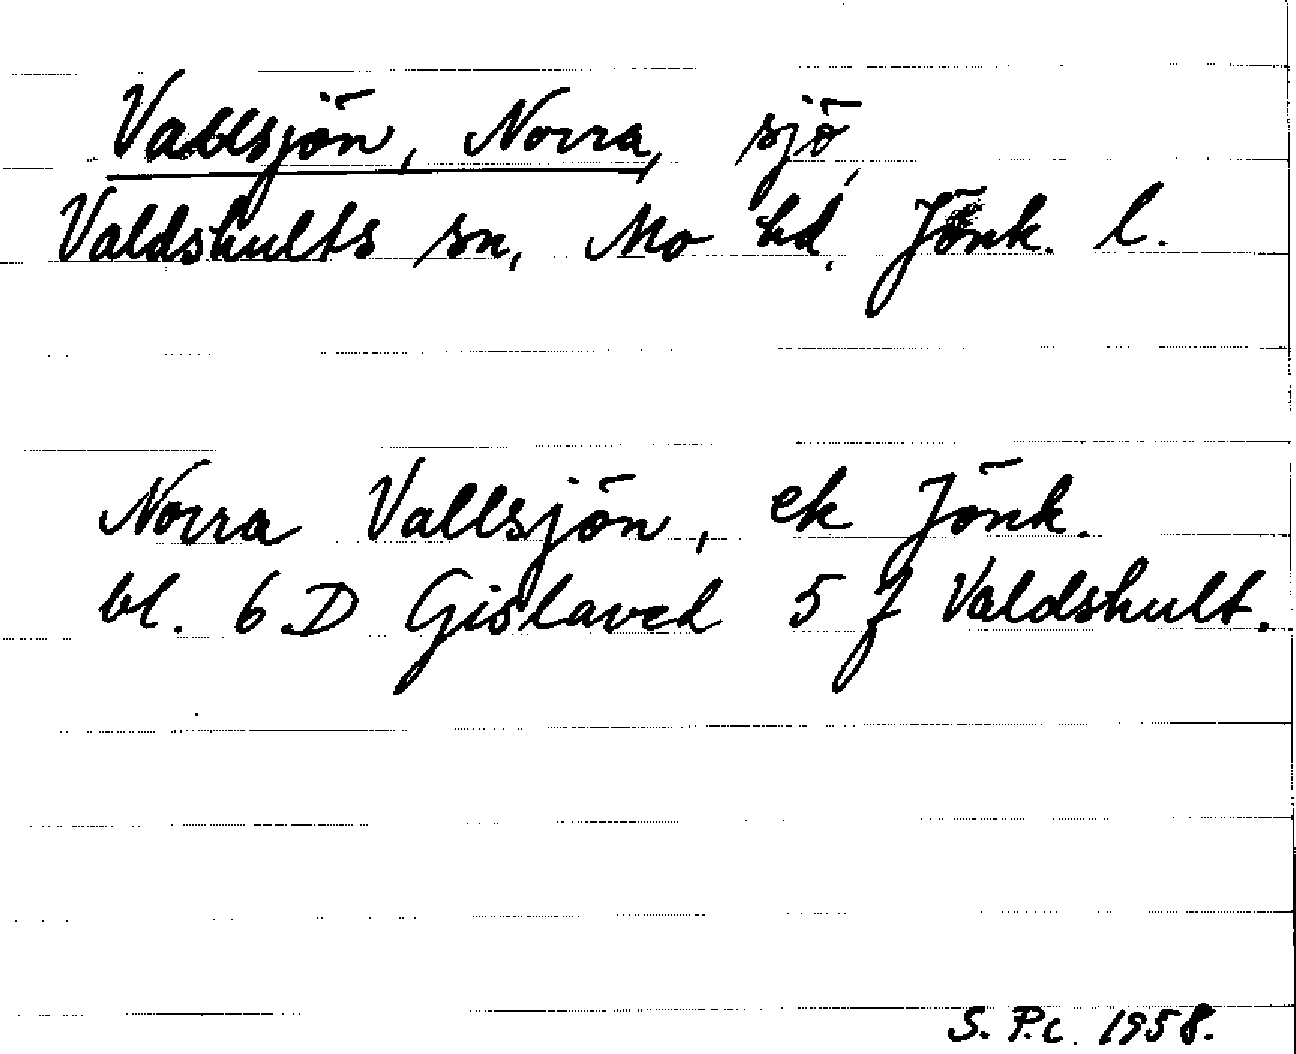 Vallsjön, Norra, sjö,
Valdshults sn, Mo hd, Jönk. l.
Norra Vallsjön, ek Jönk.
bl. 6 D Gislaved 5 J Valdshult.
S. P.c. 1958.